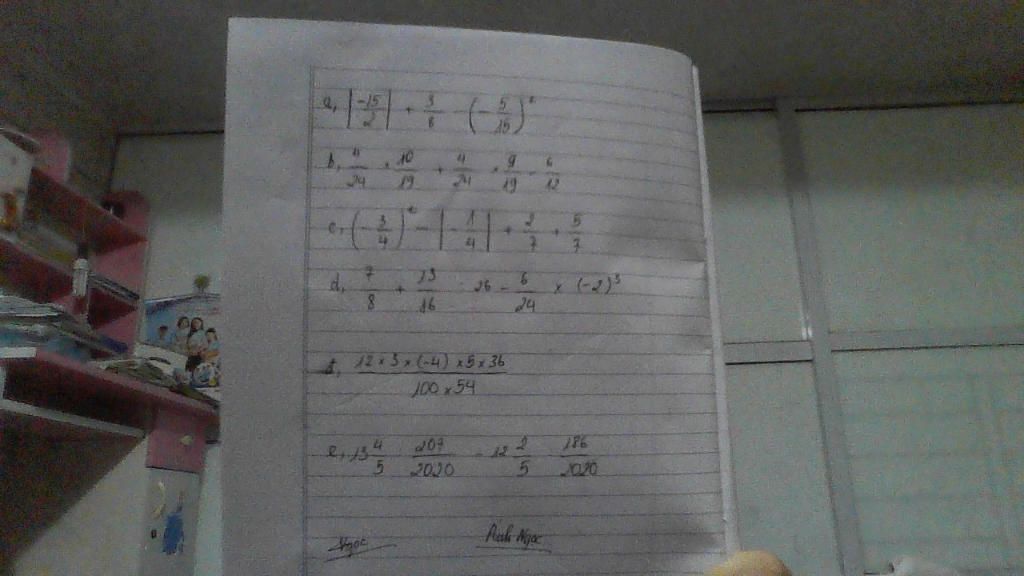 a, |-15/2| + 3/8 - (-5/15)²
b, 4/24 × 10/19 + 4/24 × 9/19 - 6/12
c, (-3/4)² - |-1/4| + 2/7 + 5/7
d, 7/8 + 13/16 : 26 - 6/24 × (-2)³
12 × 3 × (-4) × 5 × 36 / 100 × 54
e, 13 4/5 207/2020 - 12 2/5 186/2020
Ngọc
Ngọc